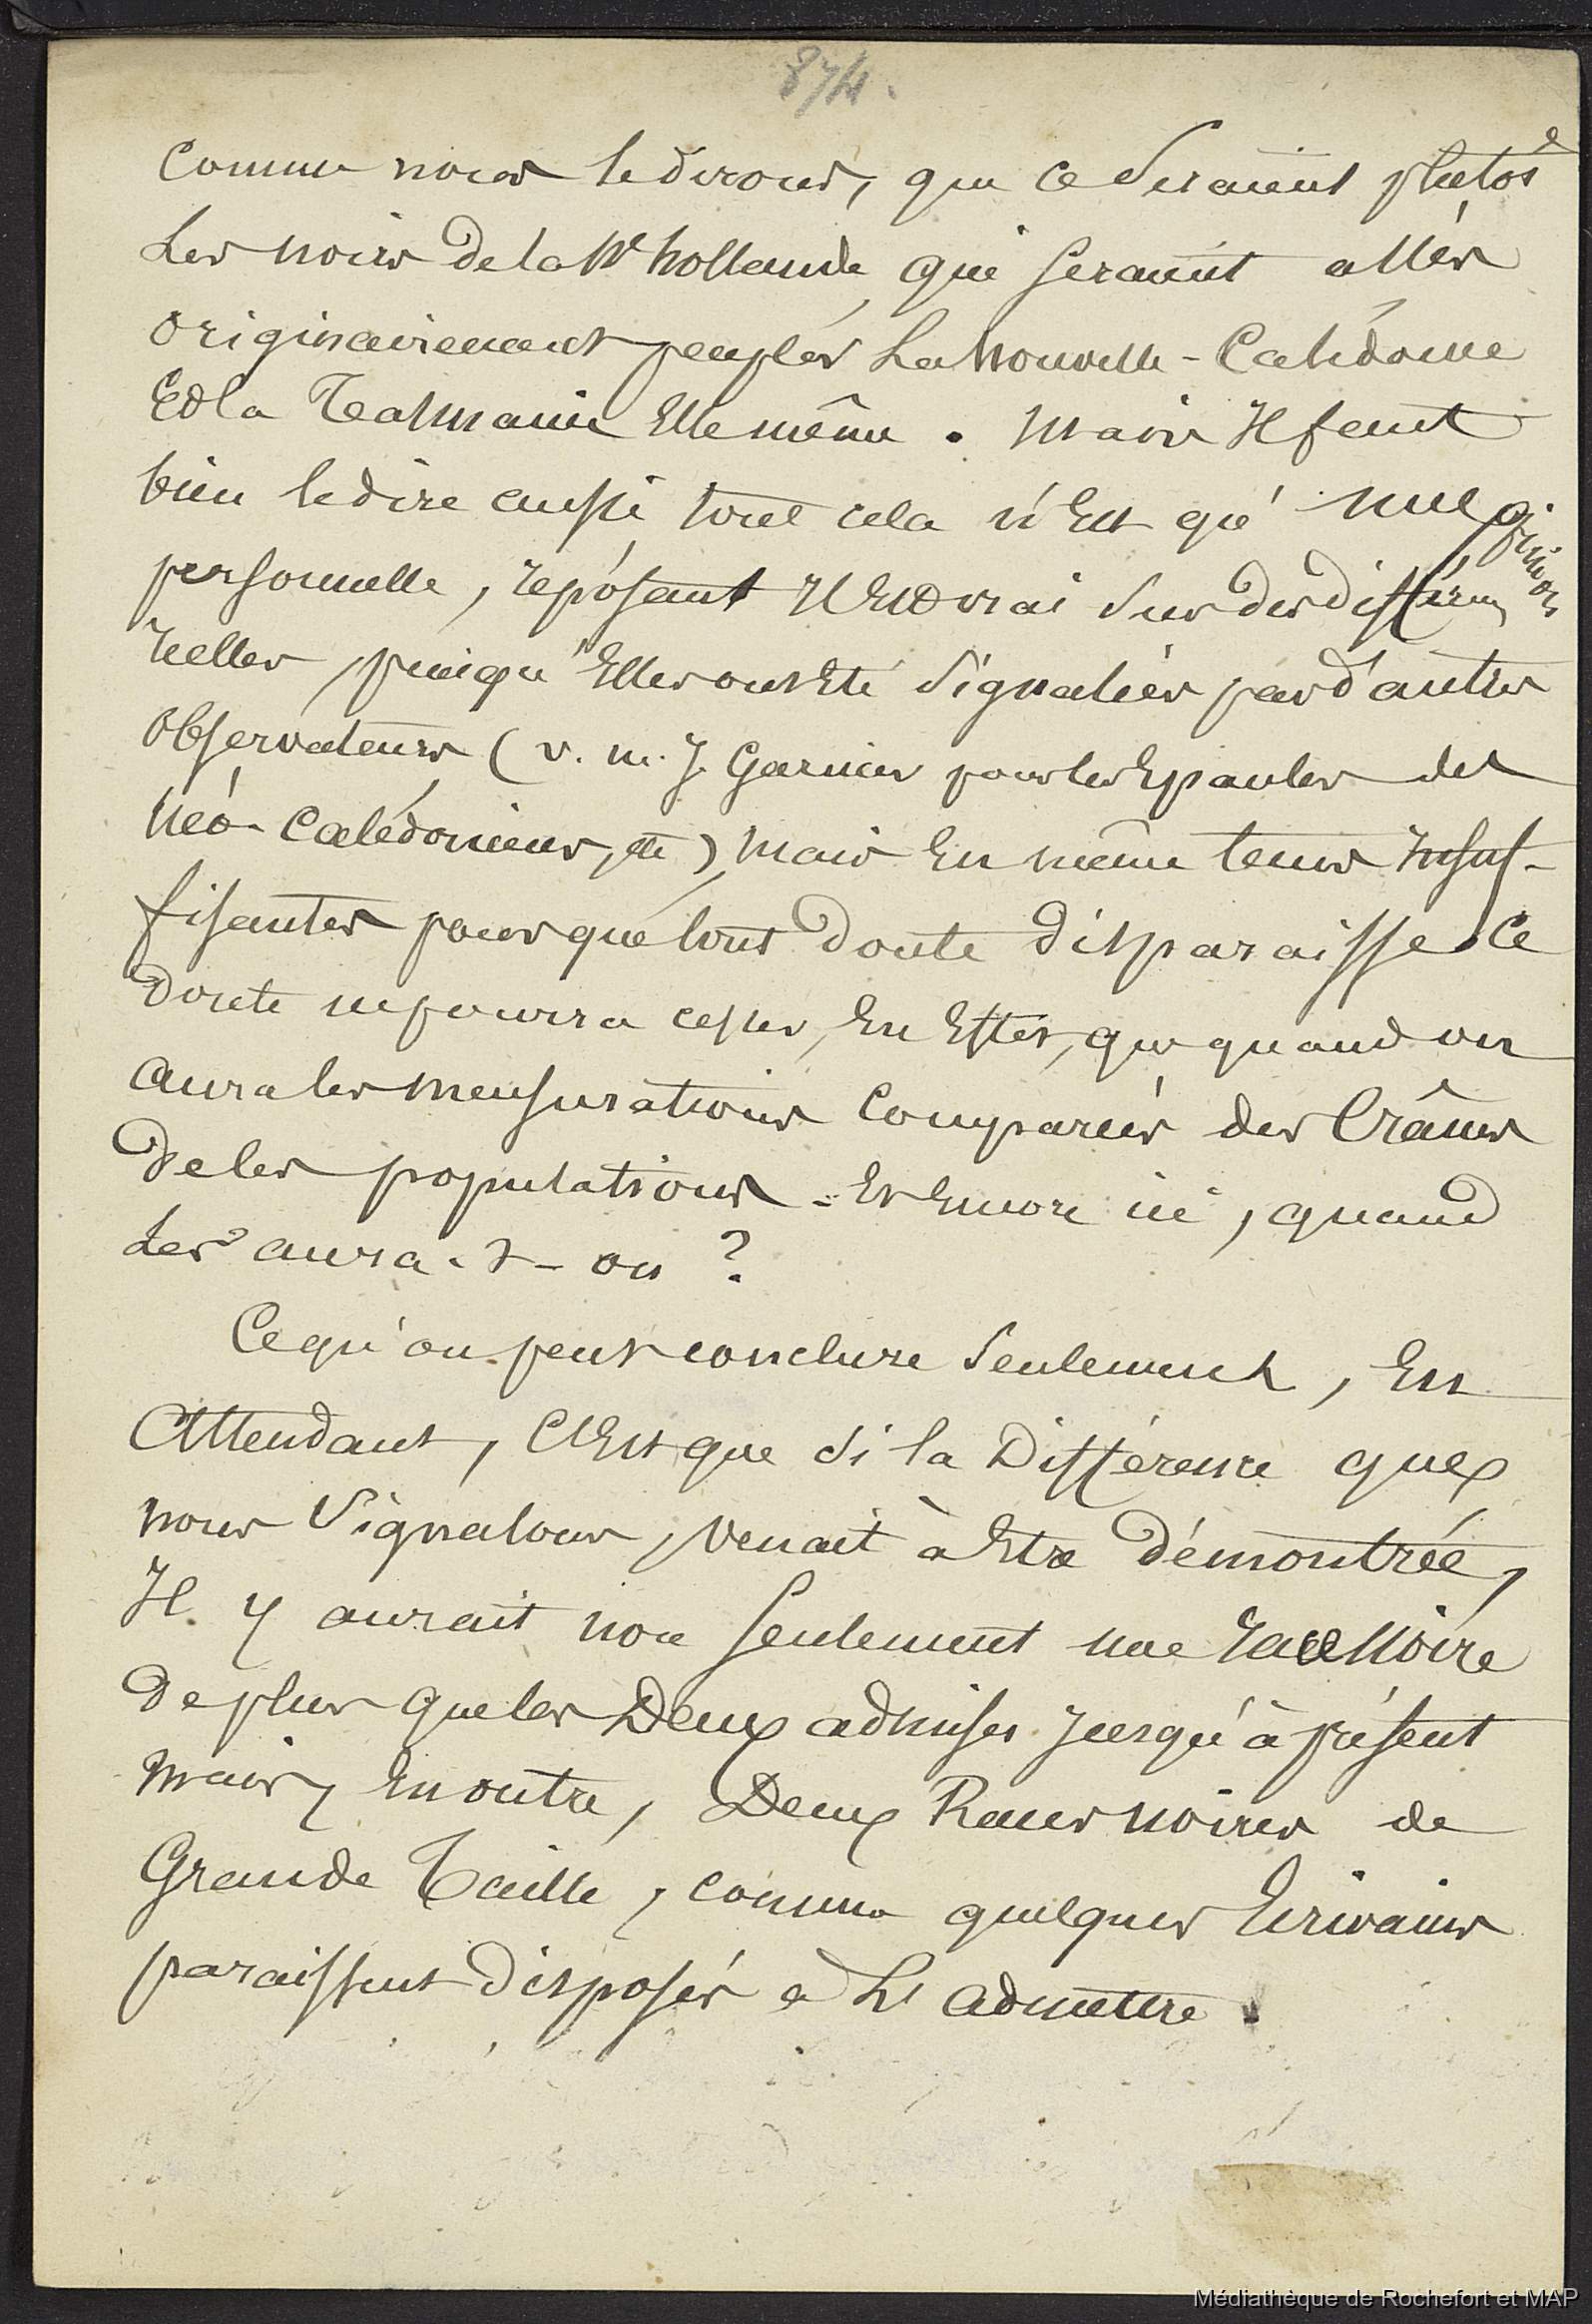 874.
comme nous le dirons, que ce seraient plutôt
les noirs de la Nlle hollande qui seraient allés
originairement peupler la Nouvelle-Calédonie
Et la Tasmanie Elle même. Mais Il faut
bien le dire aussi, tout cela n'Est qu'une opinion
personnelle, reposant Il Est vrai sur des différences
réelles, puisqu'Elles ont Eté signalées par d'autres
observateurs (v. m. J. Garnier pour les Epaules des
Néo-Calédoniens, etc) Mais En même tems Insuf-
fisantes pour que tout doute disparaisse. Ce
doute ne pourra cesser, En Effet, que quand on
aura les mensurations comparées des Crânes
de ces populations. Et Encore ici, quand
les aura-t-on ?
Ce qu'on peut conclure seulement, En
Attendant, C'Est que si la Différence que
nous signalons, venait à Etre démontrée,
Il y aurait non seulement une race Noire
de plus que les Deux admises jusqu'à présent
Mais, En outre, Deux Races noires de
Grande Taille, comme quelques Ecrivains
paraissent disposés à L'admettre.
Médiathèque de Rochefort et MAP